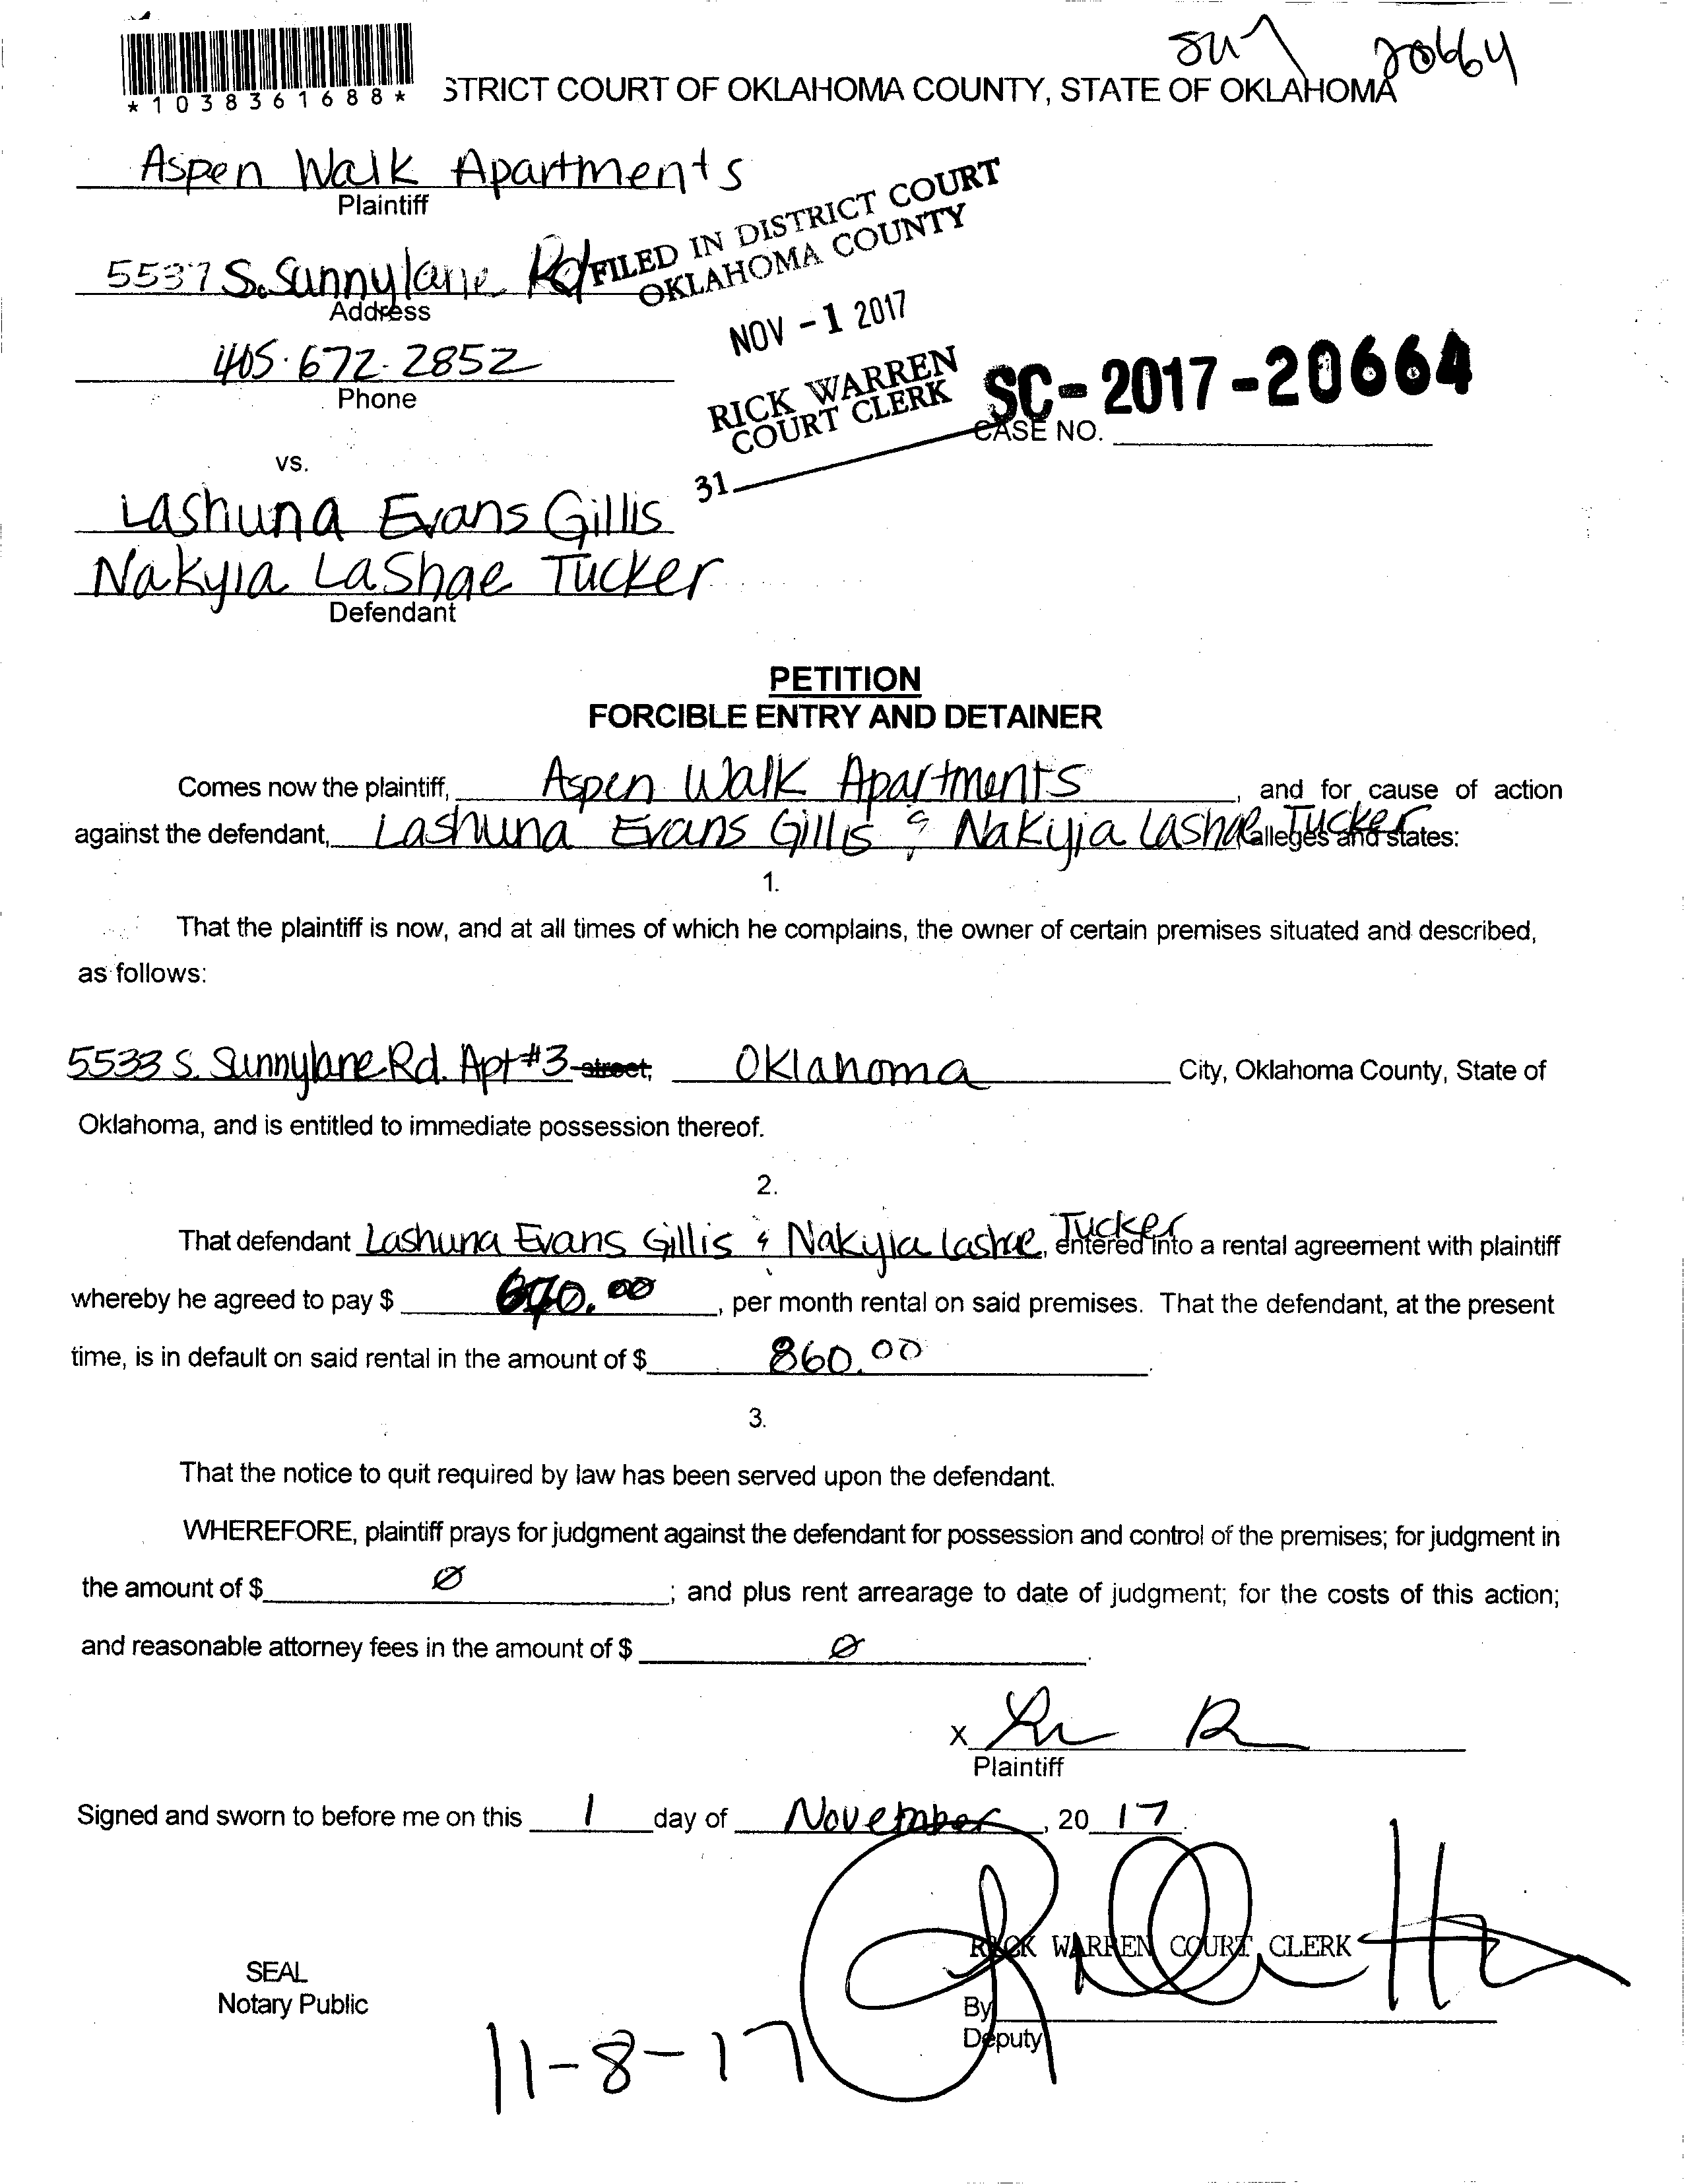 su 20664
*1038361688* STRICT COURT OF OKLAHOMA COUNTY, STATE OF OKLAHOMA
Aspen Walk Apartments
Plaintiff
FILED IN DISTRICT COURT
OKLAHOMA COUNTY
5537 S. Sunnylane Rd
Address
NOV -1 2017
405.672.2852
Phone
RICK WARREN
COURT CLERK
SC-2017-20664
CASE NO.
vs.
31
Lashuna Evans Gillis
Nakyia LaShae Tucker
Defendant
PETITION
FORCIBLE ENTRY AND DETAINER
Comes now the plaintiff, Aspen Walk Apartments, and for cause of action
against the defendant, Lashuna Evans Gillis & Nakyia Lashae Tucker alleges and states:
1.
That the plaintiff is now, and at all times of which he complains, the owner of certain premises situated and described,
as follows:
5533 S. Sunnylane Rd. Apt #3 street, Oklahoma City, Oklahoma County, State of
Oklahoma, and is entitled to immediate possession thereof.
2.
That defendant Lashuna Evans Gillis & Nakyia Lashae Tucker, entered into a rental agreement with plaintiff
whereby he agreed to pay $ , per month rental on said premises. That the defendant, at the present
time, is in default on said rental in the amount of $ 860.00.
3.
That the notice to quit required by law has been served upon the defendant.
WHEREFORE, plaintiff prays for judgment against the defendant for possession and control of the premises; for judgment in
the amount of $ Ø ; and plus rent arrearage to date of judgment; for the costs of this action;
and reasonable attorney fees in the amount of $ Ø.
X
Plaintiff
Signed and sworn to before me on this 1 day of November, 20 17.
RICK WARREN COURT CLERK
SEAL
Notary Public
By
Deputy
11-8-17